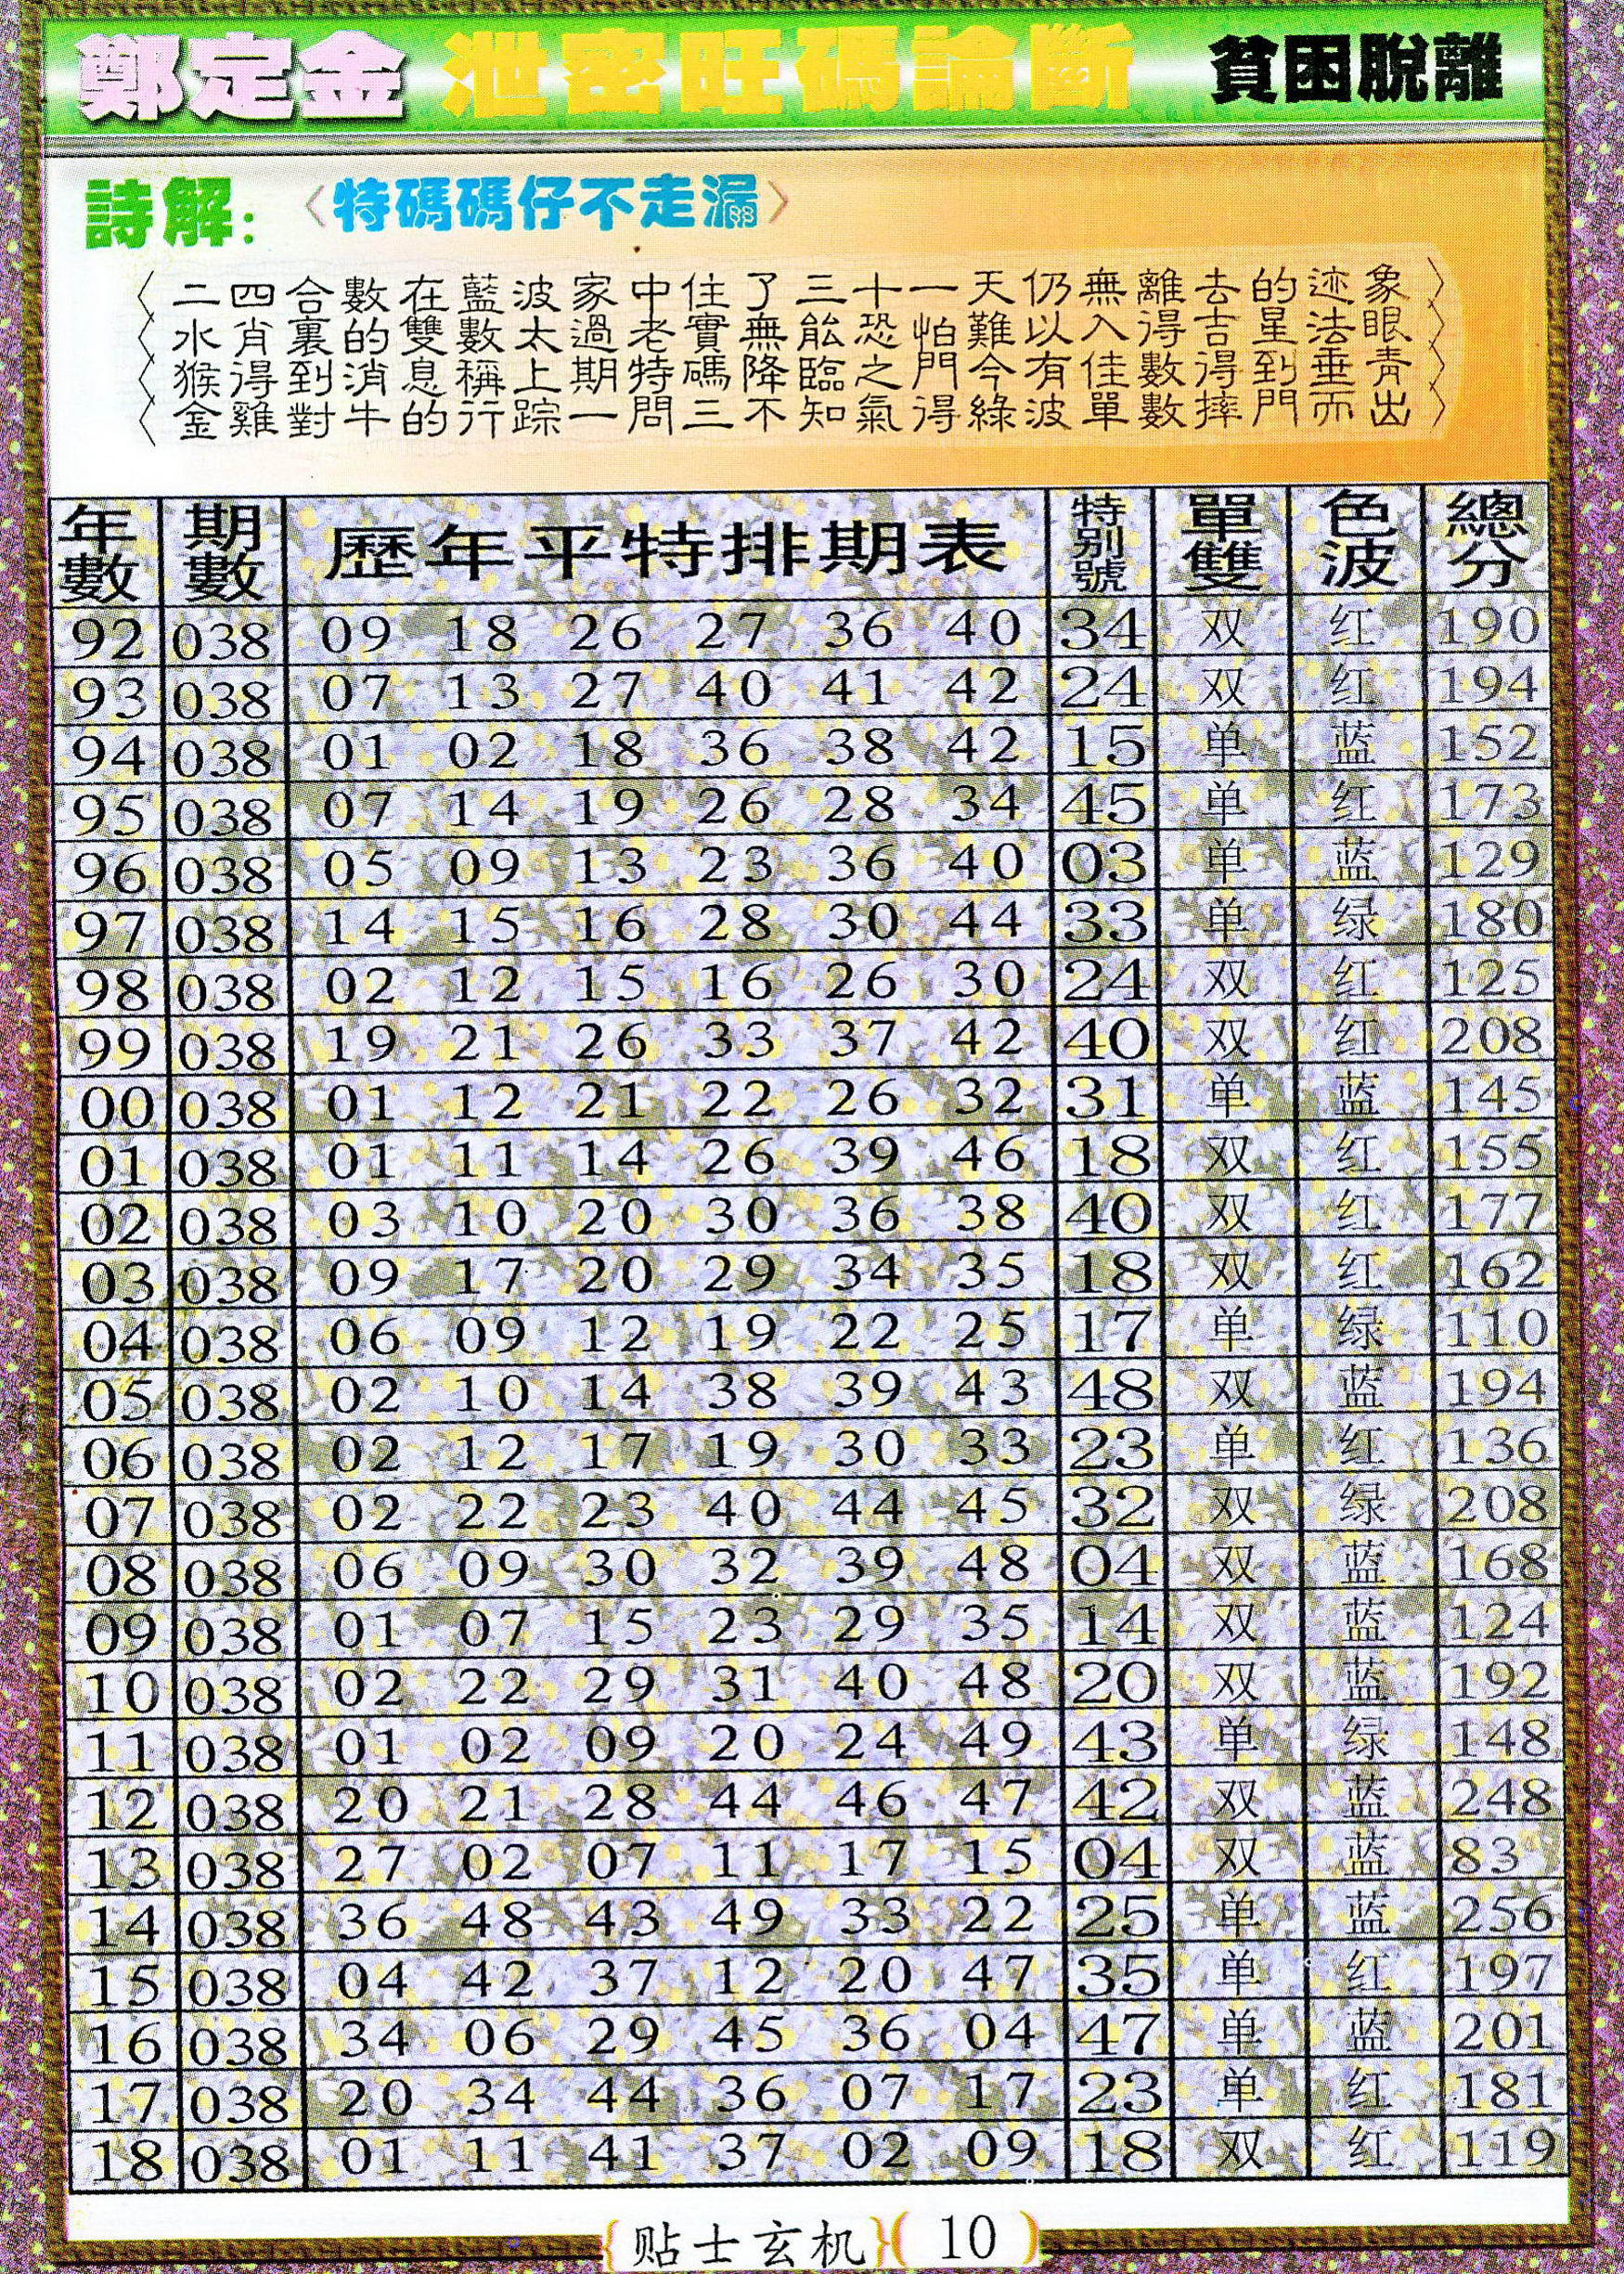 鄭定金 泄密旺碼論斷 貧困脫離
詩解: 〈特碼碼仔不走漏〉
二四合數在藍波家中住了三十一天仍無離去的迹象
水肖裏的雙數太過老實無能恐怕難以入得吉星法眼
猴得到消息稱上期特碼降臨之門今有佳數得到垂青
金雞對牛的行踪一問三不知氣得綠波單數摔門而出
年數 期數 歷年平特排期表 特别號 單雙 色波 總分
92 038 09 18 26 27 36 40 34 双 红 190
93 038 07 13 27 40 41 42 24 双 红 194
94 038 01 02 18 36 38 42 15 单 蓝 152
95 038 07 14 19 26 28 34 45 单 红 173
96 038 05 09 13 23 36 40 03 单 蓝 129
97 038 14 15 16 28 30 44 33 单 绿 180
98 038 02 12 15 16 26 30 24 双 红 125
99 038 19 21 26 33 37 42 40 双 红 208
00 038 01 12 21 22 26 32 31 单 蓝 145
01 038 01 11 14 26 39 46 18 双 红 155
02 038 03 10 20 30 36 38 40 双 红 177
03 038 09 17 20 29 34 35 18 双 红 162
04 038 06 09 12 19 22 25 17 单 绿 110
05 038 02 10 14 38 39 43 48 双 蓝 194
06 038 02 12 17 19 30 33 23 单 红 136
07 038 02 22 23 40 44 45 32 双 绿 208
08 038 06 09 30 32 39 48 04 双 蓝 168
09 038 01 07 15 23 29 35 14 双 蓝 124
10 038 02 22 29 31 40 48 20 双 蓝 192
11 038 01 02 09 20 24 49 43 单 绿 148
12 038 20 21 28 44 46 47 42 双 蓝 248
13 038 27 02 07 11 17 15 04 双 蓝 83
14 038 36 48 43 49 33 22 25 单 蓝 256
15 038 04 42 37 12 20 47 35 单 红 197
16 038 34 06 29 45 36 04 47 单 蓝 201
17 038 20 34 44 36 07 17 23 单 红 181
18 038 01 11 41 37 02 09 18 双 红 119
{贴士玄机}(10)